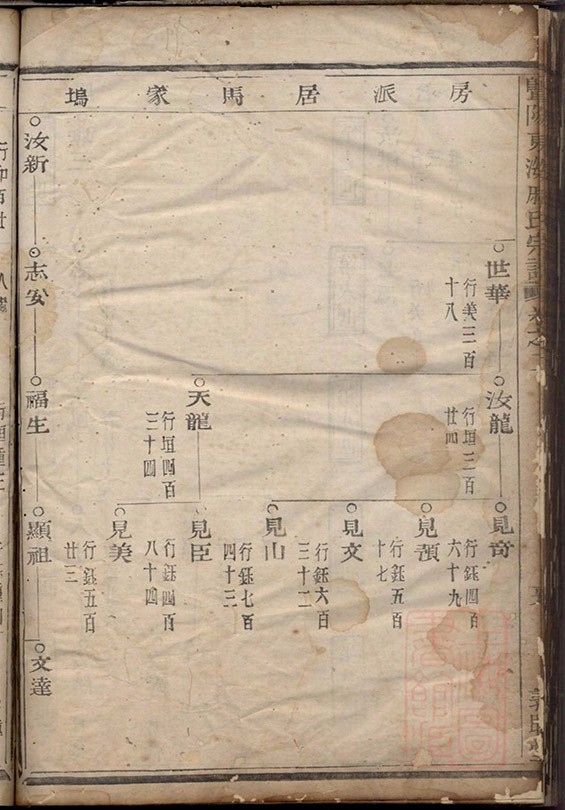 房派居馬家塢
世華
行美三百
十八
汝龍
行垣三百
廿四
天龍
行垣四百
三十四
見奇
行鈺四百
六十九
見
行鈺五百
十七
見文
行鈺六百
三十二
見山
行鈺七百
四十三
見臣
行鈺四百
八十四
見美
行鈺五百
廿三
汝新
志安
福生
顯祖
文達